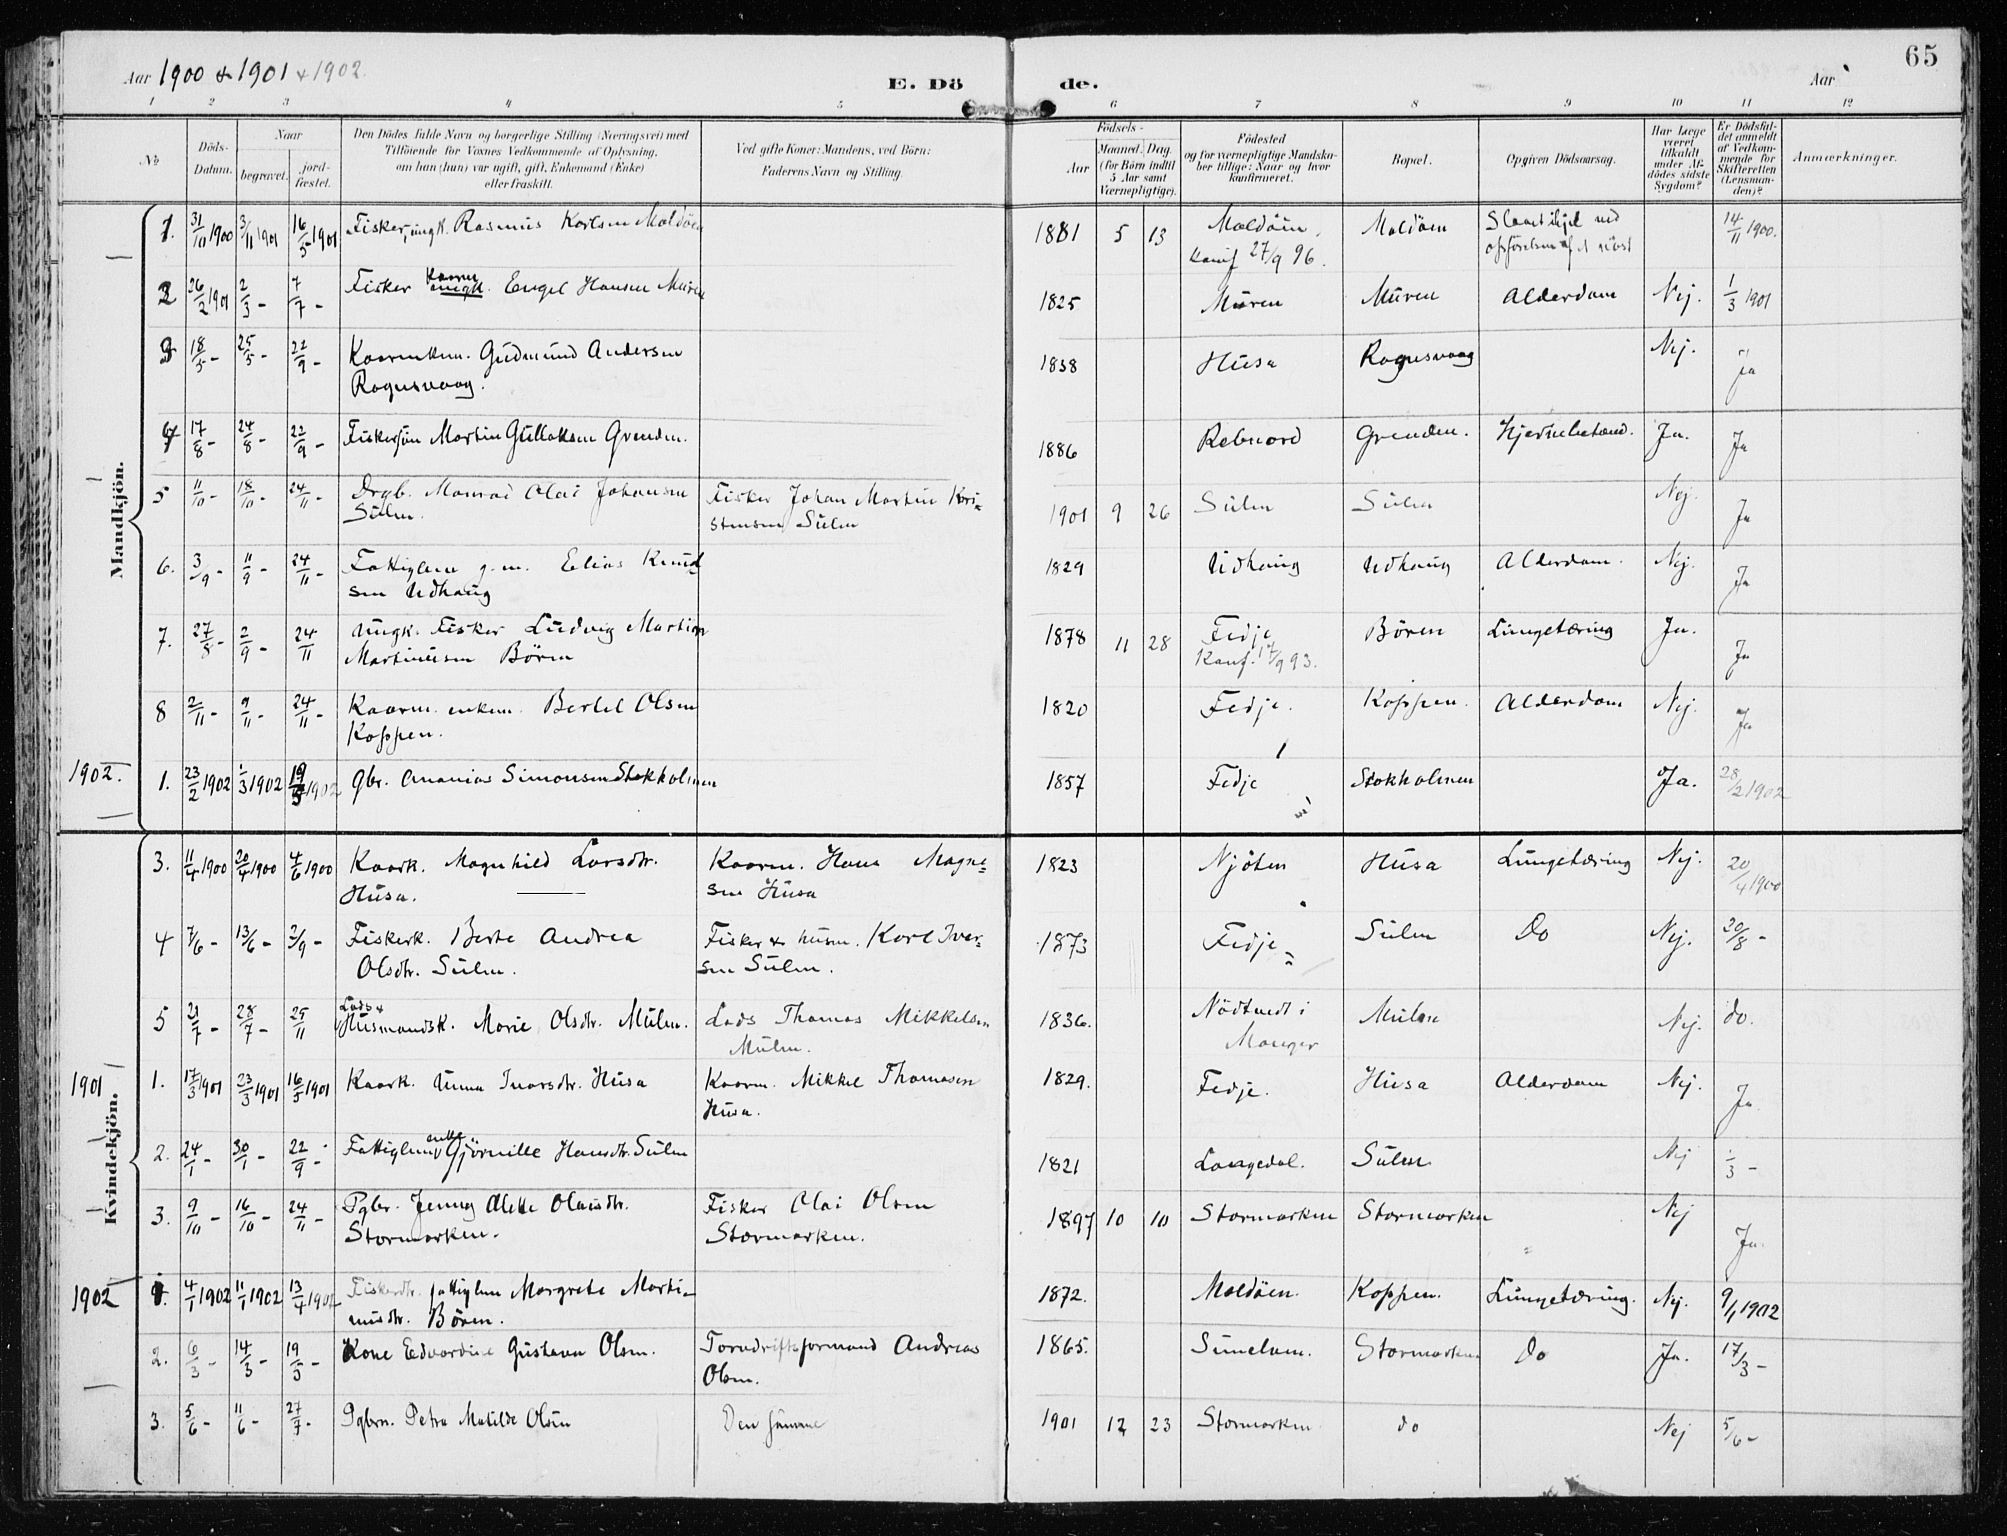 65
Aar 1900 & 1901 & 1902.
E. Dö de.
Aar
1 2 3 4 5 6 7 8 9 10 11 12
No
Döds-Datum.
Naar
begravet.
jord-fæstet.
Den Dödes fulde Navn og borgerlige Stilling (Næringsvei) med
Tilföiende for Voxnes Vedkommende af Oplysning,
om han (hun) var ugift, gift, Enkemand (Enke)
eller fraskilt.
Ved gifte Koner: Mandens, ved Börn:
Faderens Navn og Stilling.
Födsels-
Aar
Maaned. Dag.
(for Börn indtil
5 Aar samt
Værnepligtige).
Födested
og for værnepligtige Mandska-
ber tillige: Naar og hvor
konfirmeret.
Bopæl.
Opgiven Dödsaarsag.
Har Læge
været
tilkaldt
under Af-
dödes sidste
Sygdom?
Er Dödsfal-
det anmeldt
af Vedkom-
mende for
Skifteretten
(Lensman-
den)?
Anmærkninger.
Mandkjön.
1. 31/10 1900 3/11 1901 16/5 1901 Fisker, ungk. Rasmus Karlsen Moldöen 1881 5 13 Moldöen, Konf 27/9 96. Moldöen Slaaet ihjel ved opförelsen af et nöst 14/11 1900.
2 26/2 1901 2/3 - 7/7 - Fisker Engel Hansen Muren 1825 Muren Muren Alderdom Nej. 1/3 1901
3 18/5 - 25/5 - 22/9 - Kaarenkm. Gudmund Andersen
Rognsvaag. 1838 Husa Rognsvaag Nej. Ja
4 17/8 - 24/8 - 22/9 - Fiskersön Martin Gullaksen Grenden. 1886 Rebnord Grenden. Hjernebetænd. Ja. Ja
5 11/10 - 18/10 - 24/11 - Drgb. Monrad Olai Johansen
Sulen. Fisker Johan Martin Kri-
stensen Sulen 1901 9 26 Sulen Sulen Nej. Ja
6. 3/9 - 11/9 - 24/11 - Fattiglem g.m. Elias Knud-
sen Udhaug 1829 Udhaug Udhaug Alderdom. Nej. Ja
7. 27/8 - 2/9 - 24/11 Ungk. Fisker Ludvig Martin
Martinusen Bören 1878 11 28 Fedje Konf. 17/9 93. Bören Lungetæring Ja. Ja
8 2/11 - 9/11 - 24/11 - Kaarm. enkem. Bertel Olsen
Koppen. 1820 Fedje. Koppen. Alderdom Nej. Ja
1902. 1. 23/2 1902 1/3 1902 19/5 1902 Gbr. Ananias Simonsen Stokholmen 1857 Fedje Stokholmen Ja. 28/2 1902
Kvindekjön.
3. 11/4 1900 20/4 1900 4/6 1900 Kaark. Magnhild Larsdtr.
Husa. Kaarm. Hans Magne-
sen Husa 1823 Njöten Husa Lungetæring Nej. 20/4 1900
4 7/6 - 13/6 - 2/9 - Fiskerk. Berte Andrea
Olsdtr. Sulen. Fisker & husm. Karl Iver-
sen Sulen. 1873 Fedje Sulen Do Nej. 20/8 -
5 21/7 - 28/7 - 25/11 Lods &
Husmandsk. Marie Olsdtr. Mulen. Lods Thomas Mikkelsen
Mulen. 1836. Nödtvedt i
Manger Mulen Nej. do.
1901 1. 17/3 1901 23/3 1901 16/5 1901 Kaark. Unna Ivarsdtr. Husa Kaarm. Mikkel Thomasen
Husa. 1829. Fedje. Husa Alderdom Nej. Ja
2. 24/1 - 30/1 - 22/9 - Fattiglem enke Gjörnille Hansdtr. Sulen 1821 Langedal. Sulen Nej 1/3 -
3. 9/10 - 16/10 - 24/11 - Pgbr. Jenny Alette Olaisdtr.
Stormarken. Fisker Olai Olsen
Stormarken. 1897 10 10 Stormarken Stormarken Nej Ja.
1902 1. 4/1 1902 11/1 1902 13/4 1902 Fiskerdtr. fattiglem Margrete Marti-
nusdtr. Bören. 1872. Moldöen. Koppen. Lungetæring. Nej. 9/1 1902
2. 6/3 - 14/3 - 19/5 - Kone Edvardine Gustava Olsen. Torvdriftsformand Andreas
Olsen. 1865. Stormarken Do Ja. 17/3 -
3. 5/6 - 11/6 - 27/7 - Pgbrn. Petra Matilde Olsen Den samme 1901 12 23 Stormarken do Nej 5/6 -